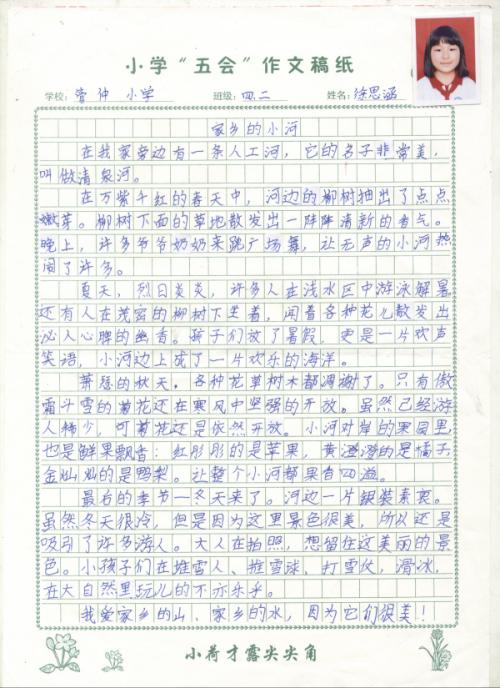 小学“五会”作文稿纸
学校：管仲 小学 班级：四、二 姓名：徐思涵
家乡的小河
在我家旁边有一条人工河，它的名子非常美，
叫做清泉河。
在万紫千红的春天中，河边的柳树抽出了点点
嫩芽。柳树下面的草地散发出一阵阵清新的香气。
晚上，许多爷爷奶奶来跳广场舞，让无声的小河热
闹了许多。
夏天，烈日炎炎，许多人在浅水区中游泳解暑
还有人在茂密的柳树下坐着，闻着各种花儿散发出
沁人心脾的幽香。孩子们放了暑假，更是一片欢声
笑语，小河边上成了一片欢乐的海洋。
萧瑟的秋天，各种花草树木都凋谢了。只有傲
霜斗雪的菊花还在寒风中坚强的开放。虽然已经游
人稀少，可菊花还是依然开放。小河对岸的果园里，
也是鲜果飘香：红彤彤的是苹果，黄澄澄的是橘子
金灿灿的是鸭梨。让整个小河都果香四溢。
最后的季节—冬天来了。河边一片银装素裹。
虽然冬天很冷，但是因为这里景色很美，所以还是
吸引了许多游人。大人在拍照，想留住这美丽的景
色。小孩子们在堆雪人、推雪球、打雪仗，滑冰，
在大自然里玩儿的不亦乐乎。
我爱家乡的山、家乡的水，因为它们很美！
小荷才露尖尖角